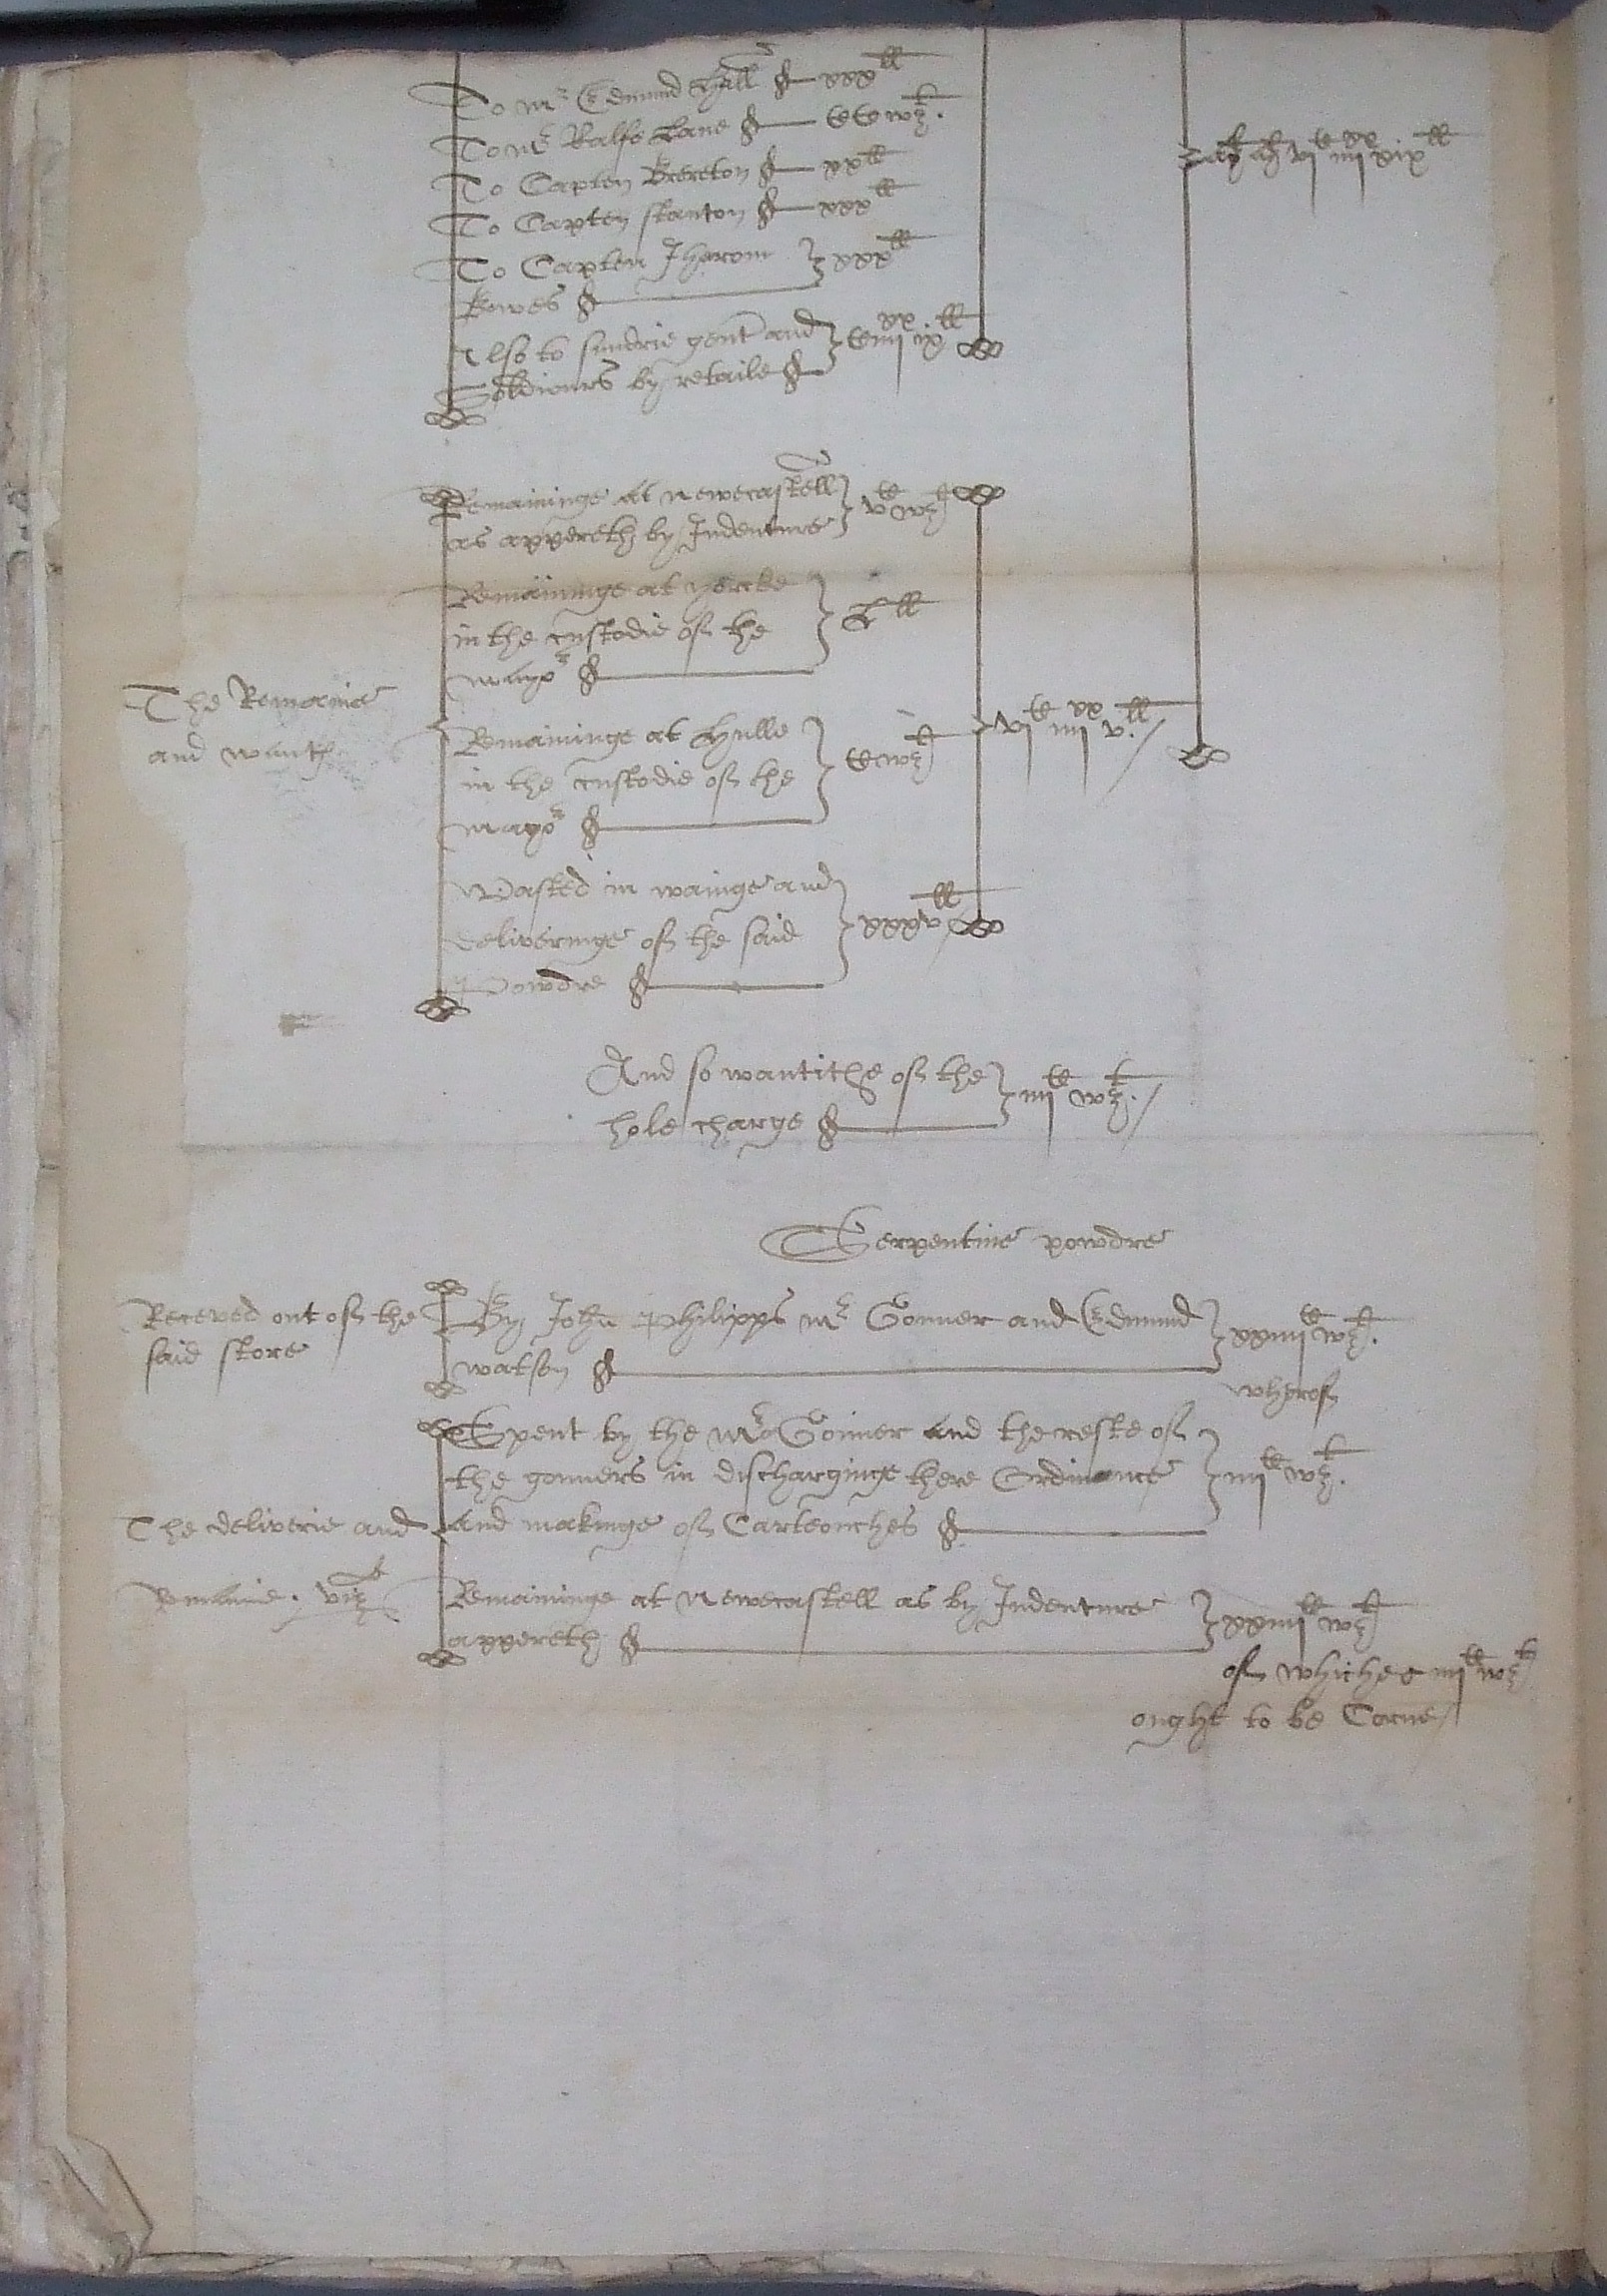 To mr Edmund Hall xxxll
To mr Ralfe Lane CC wt.
To Capten Brereton xxll
To Capten stanton xxxll
To Capten Iherom
Bowes xxxll
Also to sundrie gent and
Soldiours by retaile C iiijxx ixll
vjC iiijxx xixll
Remaininge at newecastell
as appereth by Indenture vC wt
Remaininge at yorcke
in the custodie of the
mayor Lll
The Remaine
and wanth
Remaininge at Hulle
in the custodie of the
mayor C wt
vjC iiijxx v.ll
Wasted in wainge and
deliveringe of the said
Powdre xxxvll
And so wantithe of the
hole charge iijC wt.
Serpentine powdre
Receved out of the
said store
By John Philipps mr Gonner and Edmund
watson xxiiijC wt.
wherof
Spent by the mr Gonner and the reste of
the gonners in discharginge there Ordinance
and makinge of Cartouches iijC wt.
The deliverie and
Remaine. viz
Remaininge at Newecastell as by Indenture
appereth xxiiijC wt
of whiche iijC wt
ought to be Corne